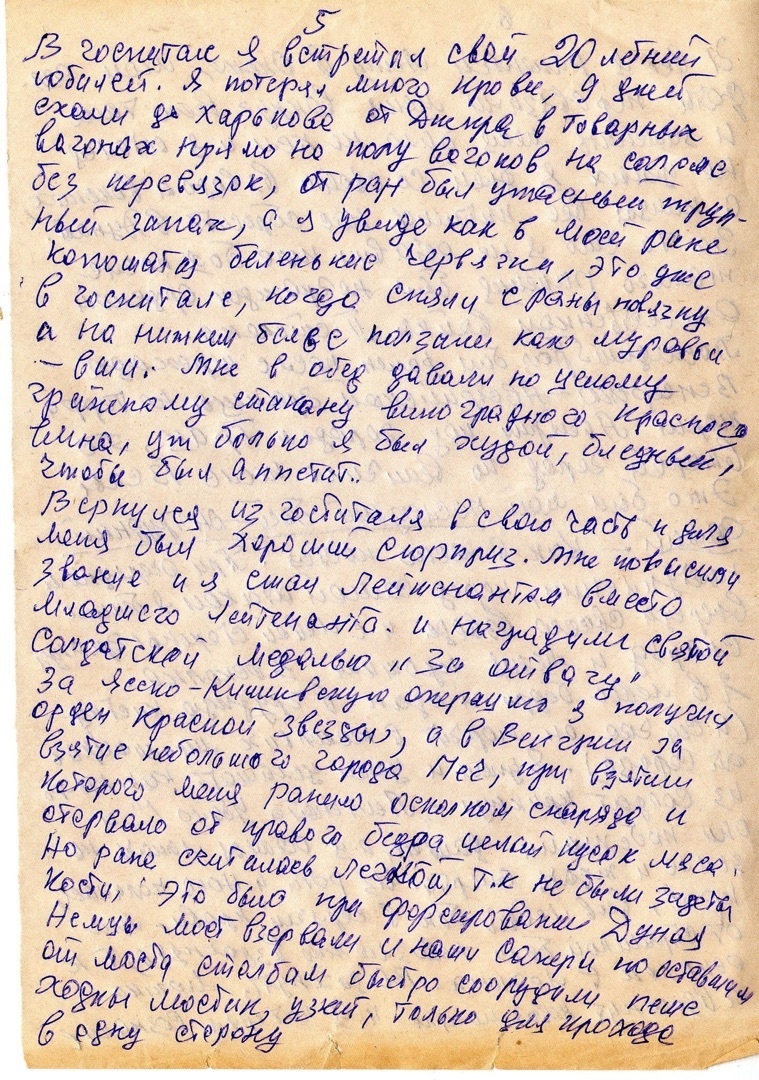 5
В госпитале я встретил свой 20 летний
юбилей. Я потерял много крови, 9 дней
ехали до Харькова от Днепра в товарных
вагонах прямо на полу вагонов на соломе
без перевязок, от ран был ужасный труп-
ный запах, а я увидел как в моей ране
копошатся беленькие червячки, это уже
в госпитале, когда сняли с раны повязку
а на нижнем белье ползали как муравьи
– вши. Мне в обед давали по целому
гранёному стакану виноградного красного
вина, уж больно я был худой, бледный,
чтобы был аппетит..
Вернулся из госпиталя в свою часть и для
меня был хороший сюрприз. Мне повысили
звание и я стал Лейтенантом вместо
младшего Лейтенанта. и наградили святой
солдатской медалью „За отвагу"
За Ясско-Кишиневскую операцию я получил
орден Красной Звезды, а в Венгрии за
взятие небольшого города Печ, при взятии
которого меня ранило осколком снаряда и
оторвало от правого бедра целый кусок мяса.
Но рана считалась легкой, т.к не были задеты
кости. Это было при форсировании Дуная
Немцы мост взорвали и наши саперы по оставшим
от моста столбам быстро соорудили пеше
ходный мостик, узкий, только для прохода
в одну сторону